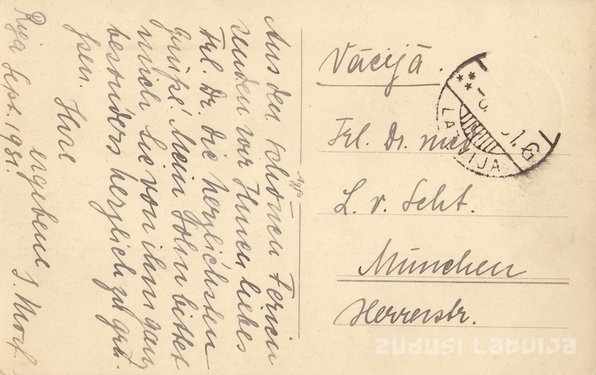 Aus den schönen Ferien
senden wir Ihnen, liebes
Frl. Dr. die herzlichsten
Grüße! Mein Sohn bittet
mich Sie von ihm ganz
besonders herzlich zu grü-
ßen. Ihre
ergebene J. Morf
Riga Sept. 1931.
Vācijā.
Frl. Dr. med
L. v. Scht.
München
Herrerstr.
LATVIJA
ZUDUSĪ LATVIJA